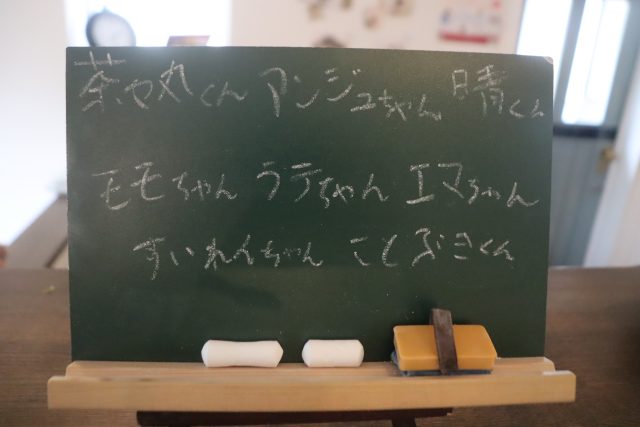 茶々丸くん アンジュちゃん 晴くん
モモちゃん ラテちゃん エマちゃん
すいれんちゃん ことぶきくん